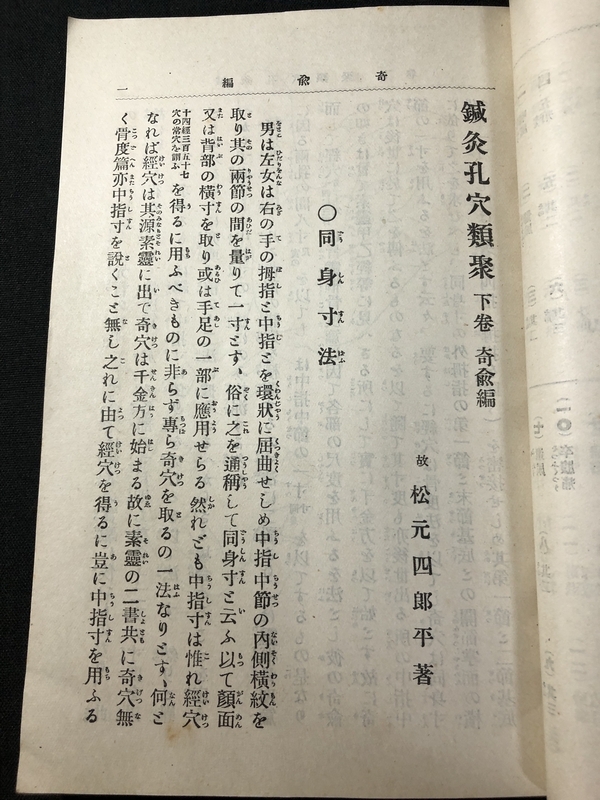 奇兪編
一
鍼灸孔穴類聚 下卷 奇兪編
故 松元四郎平著
〇同身寸法
男は左女は右の手の拇指と中指とを環狀に屈曲せしめ中指中節の內側橫紋を
取り其の兩節の間を量りて一寸とす、俗に之を通稱して同身寸と云ふ以て顏面
又は背部の橫寸を取り或は手足の一部に應用せらる然れども中指寸は惟れ經穴
十四經三百五十七穴の常穴を謂ふを得るに用ふべきものに非らず專ら奇穴を取るの一法なりとす、何と
なれば經穴は其源素靈に出で奇穴は千金方に始まる故に素靈の二書共に奇穴無
く骨度篇亦中指寸を說くこと無し之れに由て經穴を得るに豈に中指寸を用ふる